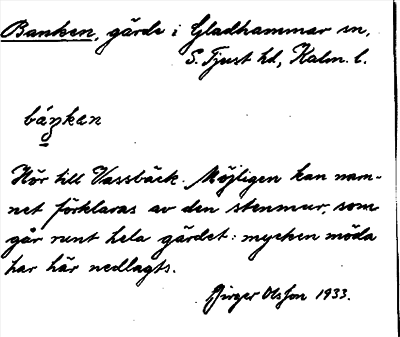 Banken, gärde i Gladhammar sn,
S. Tjust hd, Kalm. l.
báŋkan
Hör till Vassbäck. Möjligen kan nam-
net förklaras av den stenmur, som
går runt hela gärdet: mycken möda
har här nedlagts.
Birger Olsson 1933.